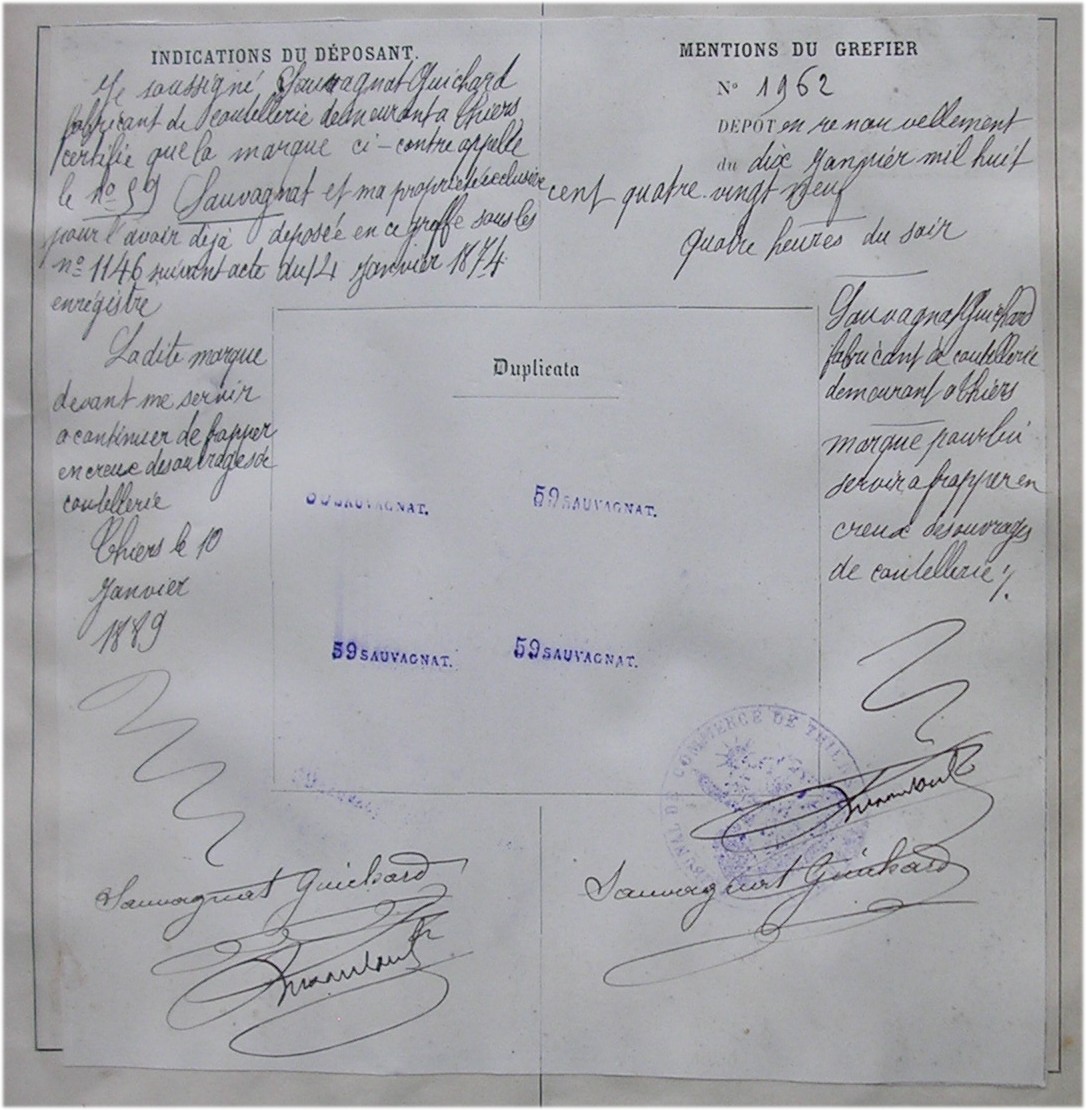 INDICATIONS DU DÉPOSANT.
Je soussigné Sauvagnat Guichard
fabricant de coutellerie demeurant a Thiers
certifie que la marque ci-contre appelle
le nº 59 Sauvagnat et ma propriete exclusive
pour l'avoir déjà deposée en ce greffe sous les
nº 1146 suivant acte du 14 Janvier 1874
enregistre
La dite marque
devant me servir
a continuer de frapper
en creux des ouvrages de
coutellerie
Thiers le 10
Janvier
1889
Sauvagnat Guichard
MENTIONS DU GREFIER
Nº 1962
DÉPÔT en renouvellement
du dix Janvier mil huit
cent quatre-vingt neuf
quatre heures du soir
Sauvagnat Guichard
fabricant de coutellerie
demeurant a Thiers
marque pour lui
servir a frapper en
creux des ouvrages
de coutellerie ./.
Sauvagnat Guichard
Duplicata
59 SAUVAGNAT.
59 SAUVAGNAT.
59 SAUVAGNAT.
59 SAUVAGNAT.
59 SAUVAGNAT
TRIBUNAL DE COMMERCE DE THIERS